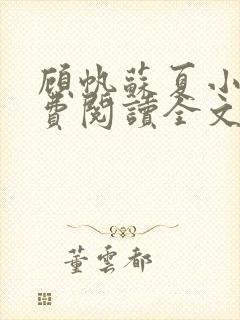 顾帆蘇夏小
費閱讀全文
董雲都